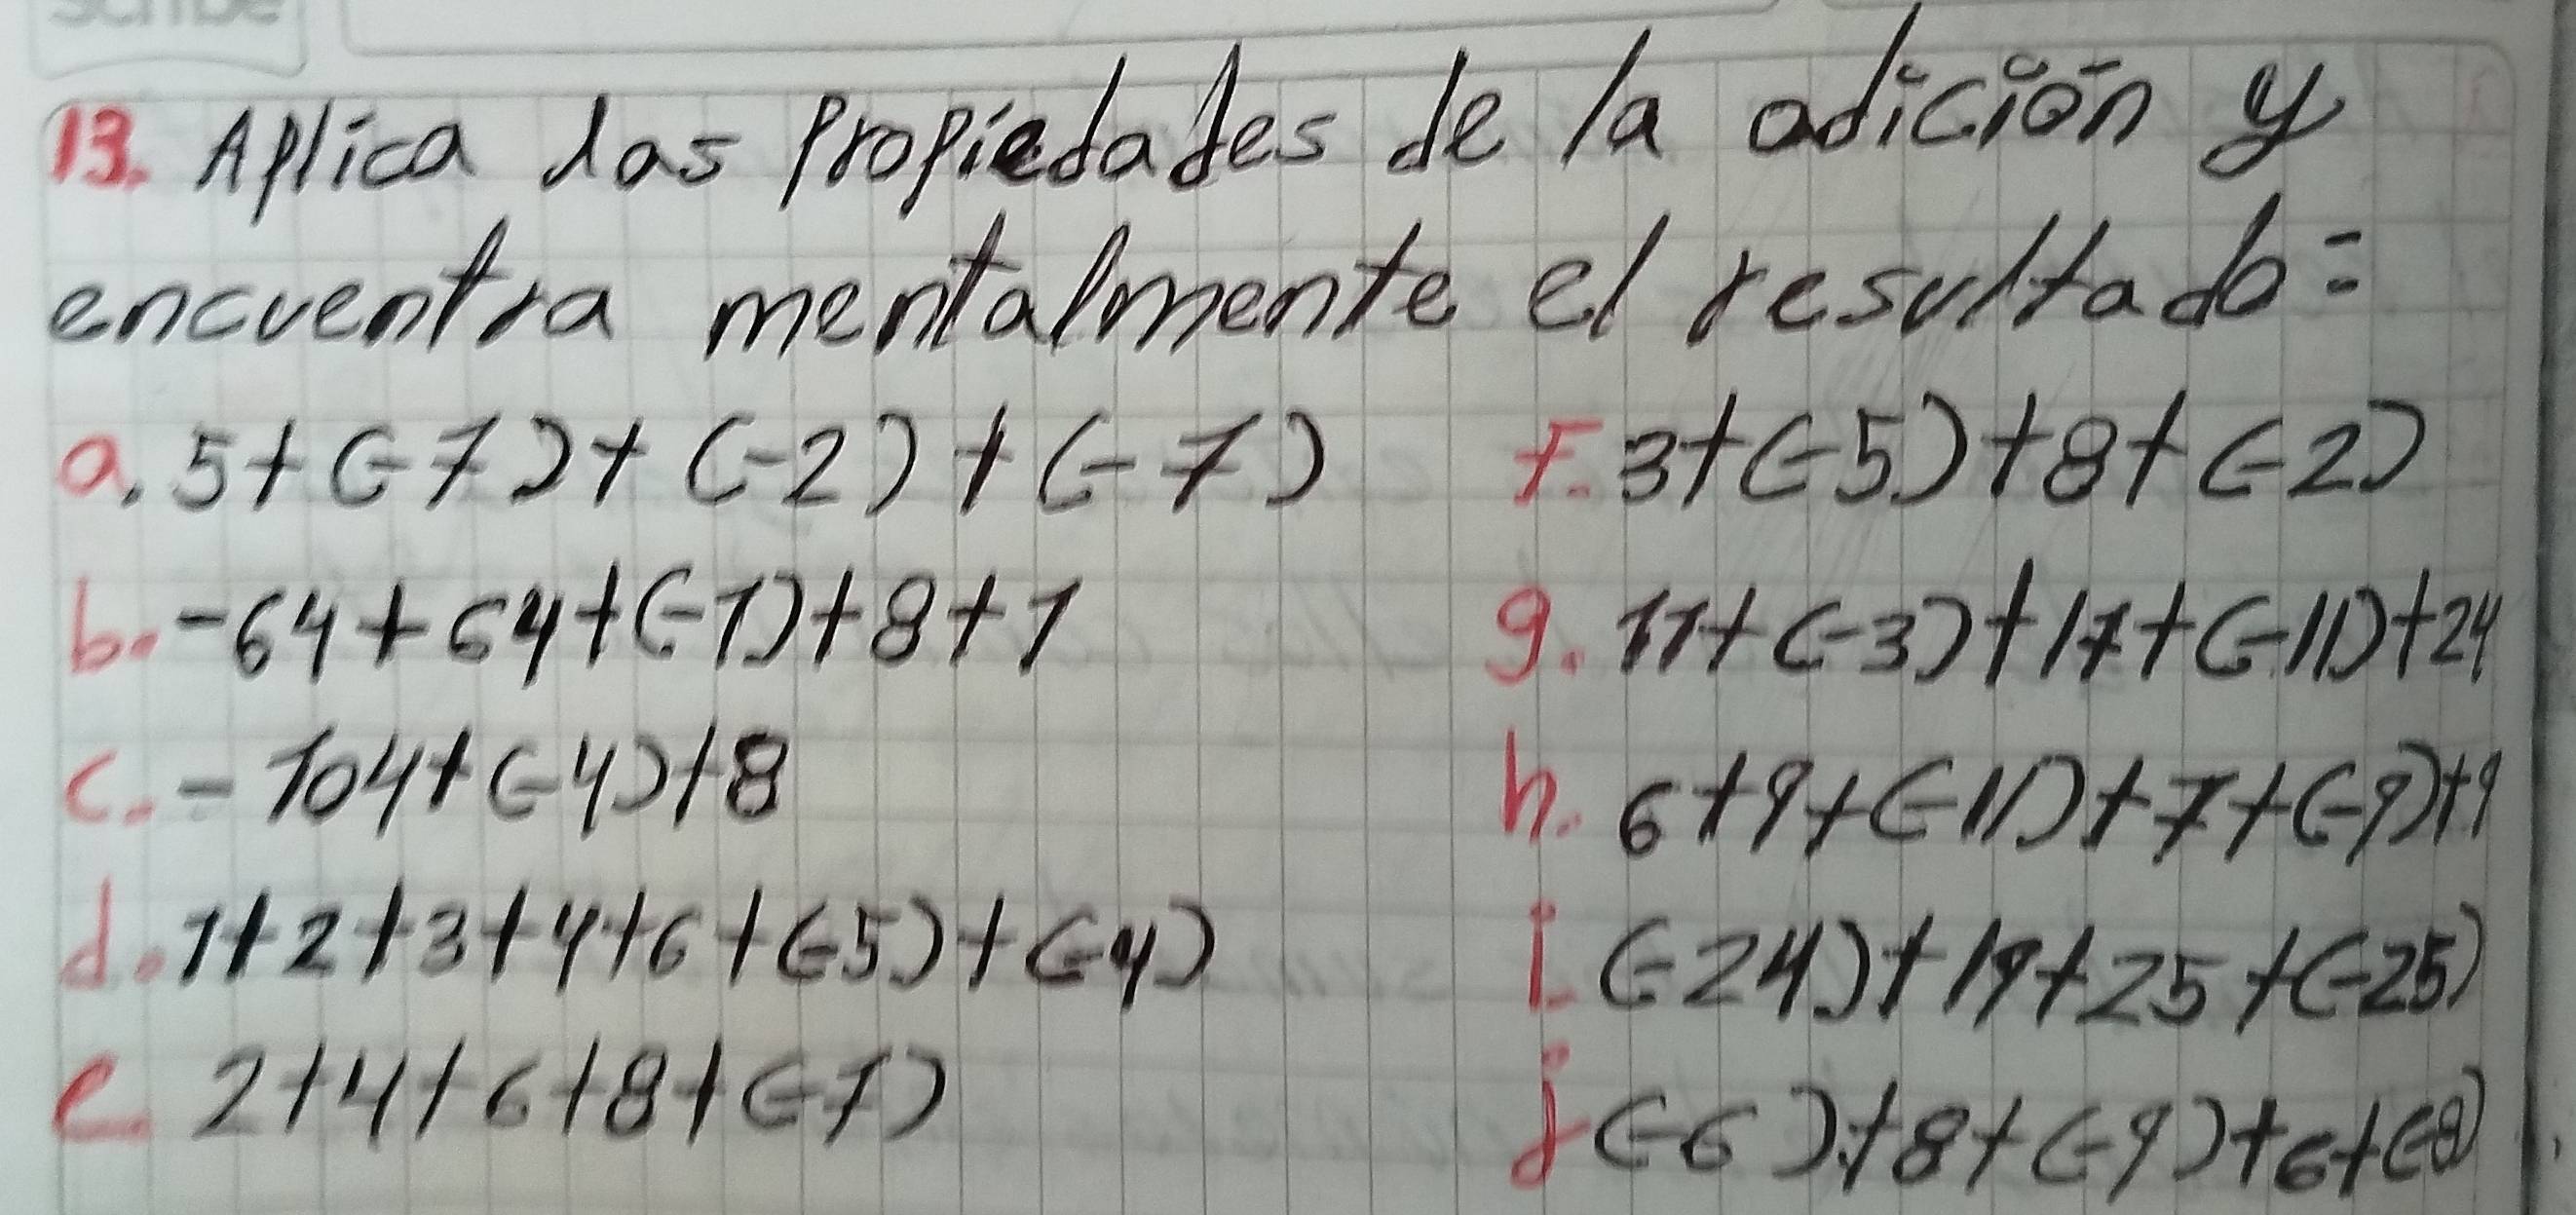 scribe
13. Aplica las propiedades de la adición y
encuentra mentalmente el resultado:
a. 5+(-7)+(-2)+(-7)
f. 3+(-5)+8+(-2)
b. -64+64+(-1)+8+1
g. 11+(-3)+17+(-11)+24
c. -104+(-4)+8
h. 6+9+(-11)+7+(-9)+9
d. 1+2+3+4+6+(-5)+(-4)
i. (-24)+19+25+(-25)
e. 2+4+6+8+(-7)
j (-6)+8+(-9)+6+(-8)